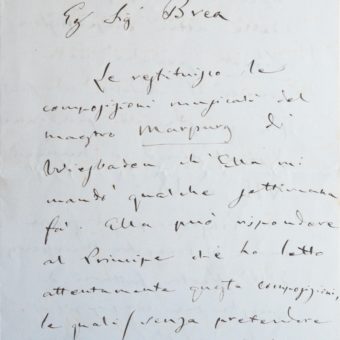 Eg Sig Brea
Le restituisco le
composizioni musicali del
maestro Marpurg di
Wiesbaden ch'Ella mi
mandò qualche settimana
fa. Ella può rispondere
al Principe che ho letto
attentamente queste composizioni,
le quali senza pretendere